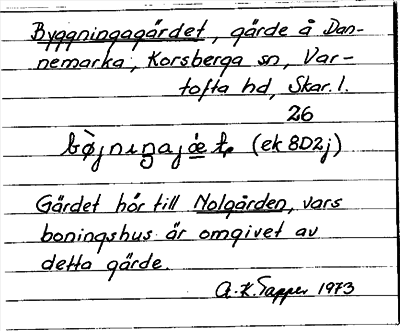 Byggningagärdet, gärde å Dan-
nemarka, Korsberga sn, Var-
tofta hd, Skar. l.
26
bø̀jnıŋajæ t. (ek 8D2j)
Gärdet hör till Nolgården, vars
boningshus är omgivet av
detta gärde.
A.K. Tapper 1973